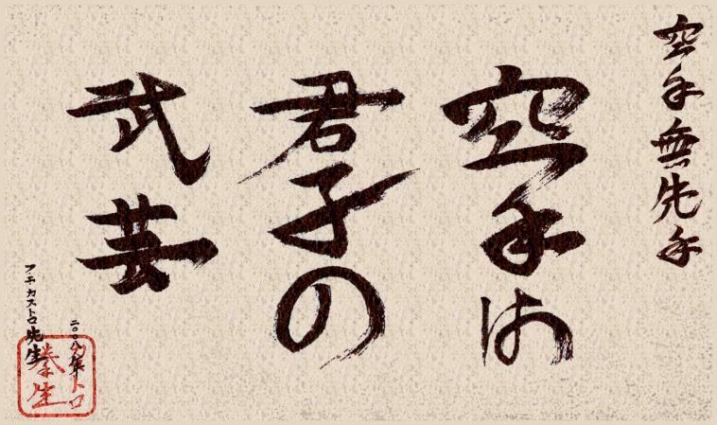 空手無先手
空手は
君子の
武芸
二〇〇八年
フチカストロ先生